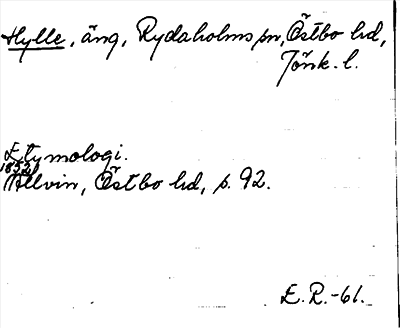 Hylle, äng, Rydaholms sn, Östbo hd,
Jönk. l.
Etymologi.
(1852)
Allvin, Östbo hd, s. 92.
E. R. -61.